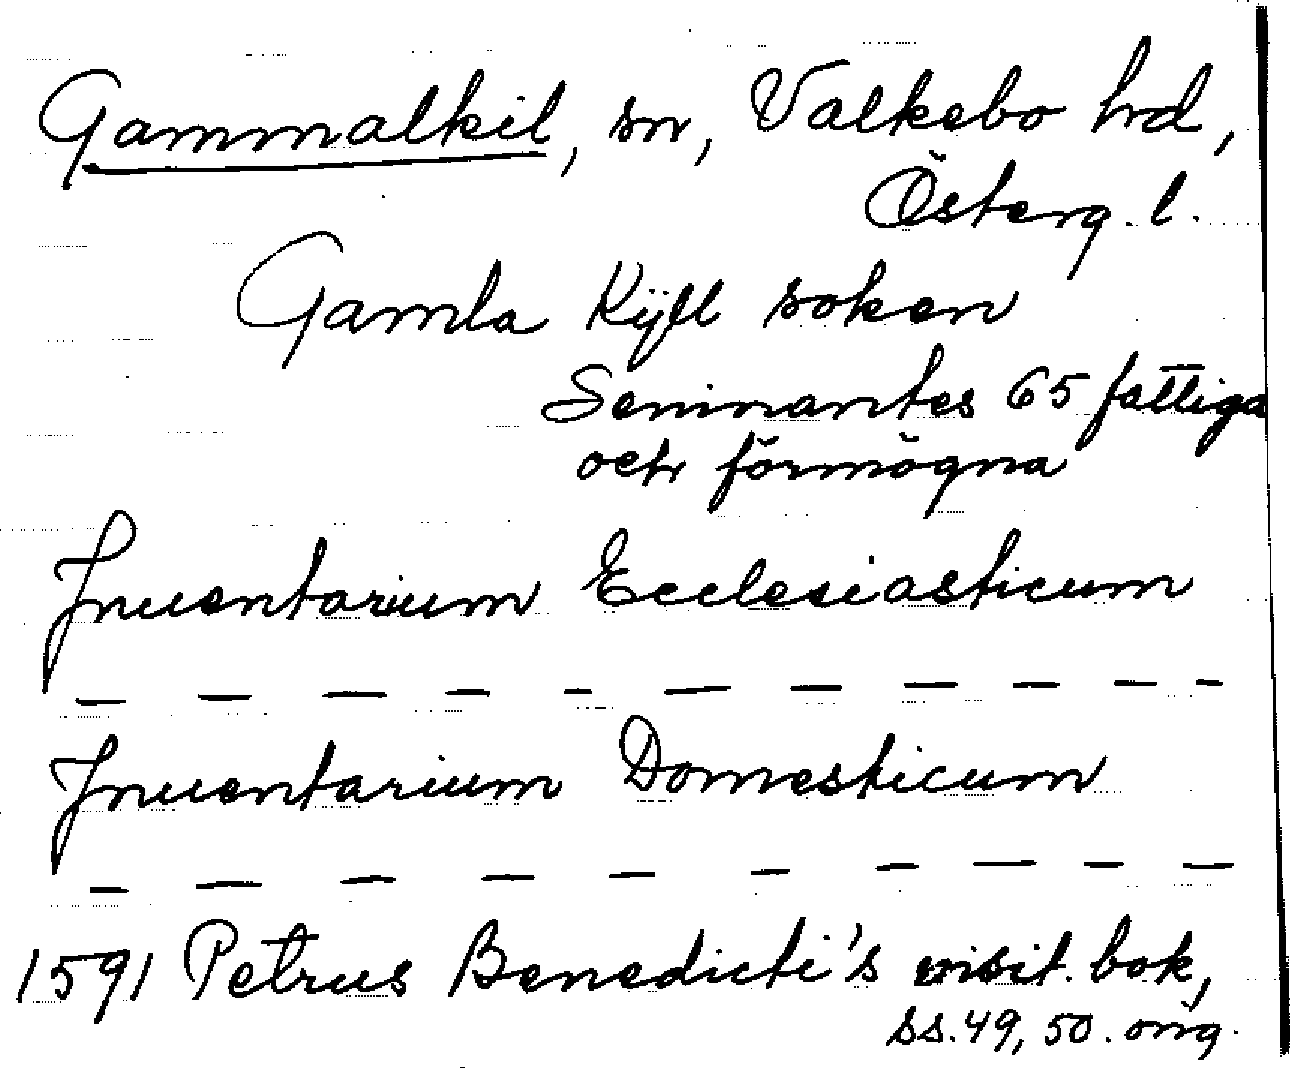 Gammalkil, sn, Valkebo hd,
Österg. l.
Gamla Kÿll soken
Seminantes 65 fattiga
och förmögna
Inuentarium Ecclesiasticum
— — — — — — — — — — —
Inuentarium Domesticum
— — — — — — — — —
1591 Petrus Benedicti's visit. bok,
ss. 49, 50. orig.